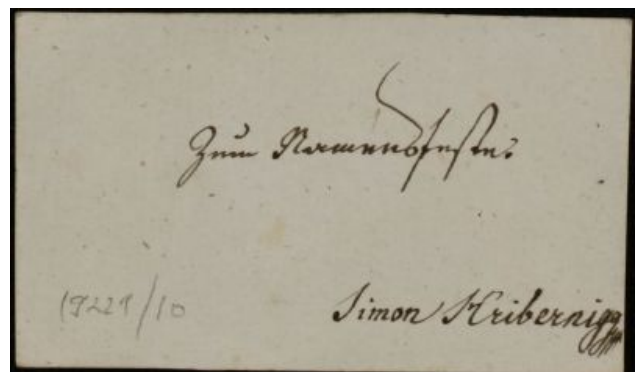 Zum Namensfeste.
19221/10
Simon Hribernigg